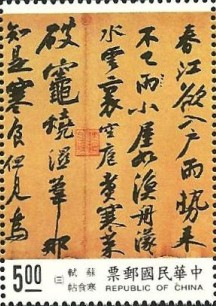 春江欲入戶雨勢來
不已雨小屋如漁舟濛
水雲裏空庖煮寒菜
破竈燒溼葦那
知是寒食但見烏
中華民國郵票
REPUBLIC OF CHINA
蘇軾
寒食帖
(三)
5.00